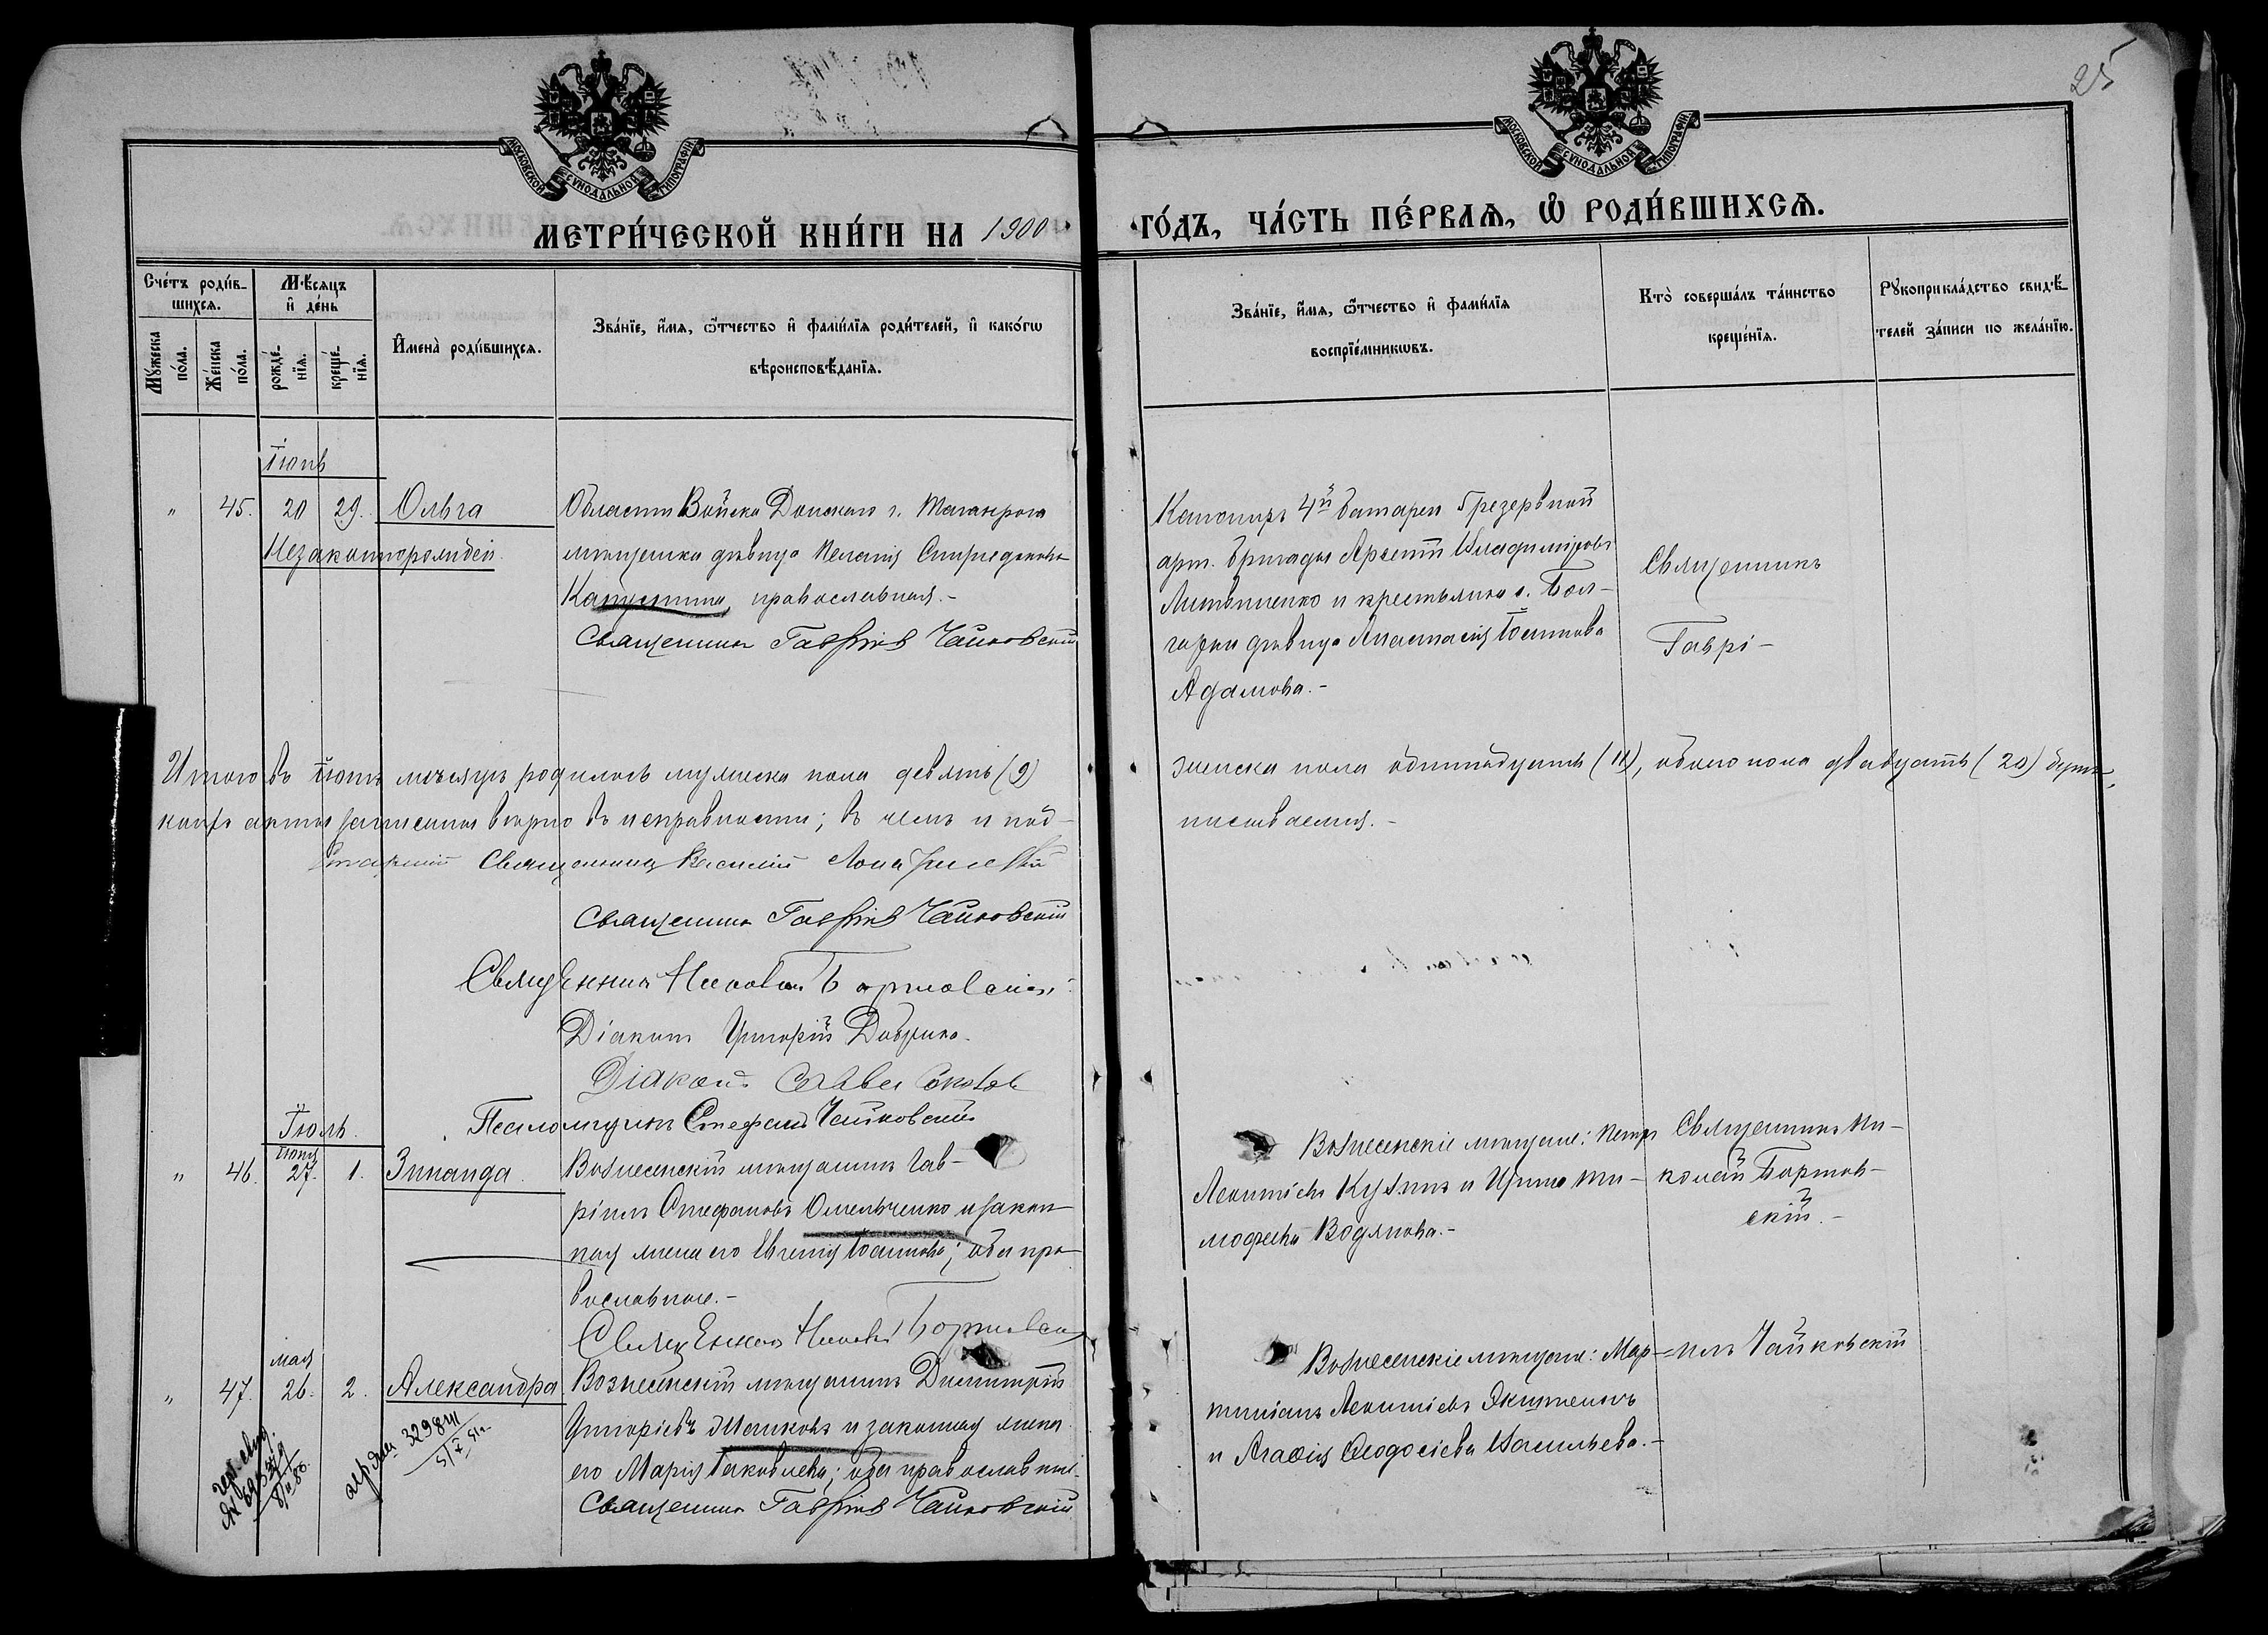 25
МОСКОВСКОЙ СѴНОДАЛЬНОЙ ТИПОГРАФІИ
МОСКОВСКОЙ СѴНОДАЛЬНОЙ ТИПОГРАФІИ
МЕТРИ́ЧЕСКОЙ КНИ́ГИ НА 1900
ГО́ДЪ, ЧА́СТЬ ПЕ́РВАѦ, Ѽ РОДИ́ВШИХСѦ.
Сче́тъ роди́в-
шихся.
Мꙋ́жеска по́ла.
Же́нска по́ла.
Мѣ́сяцъ
и҆ де́нь
рожде́-
нїя.
креще́-
нїя.
И҆мена̀ роди́вшихся.
Зва́нїе, и҆́мя, ѻ҆́тчество и҆ фами́лїя роди́телей, и҆ како́гѡ
вѣроисповѣ́данїя.
Зва́нїе, и҆́мя, ѻ҆́тчество и҆ фами́лїя
воспрїе́мникѡвъ.
Кто̀ соверша́лъ та́инство
креще́нїя.
Рꙋкоприкла́дство свидѣ́-
телей за́писи по жела́нїю.
Іюнь
" 45. 20 29. Ольга
Незаконнорожден.
Области Войска Донскаго г. Таганрога
мѣщанка дѣвица Пелагія Спиридонова
Капустина, православная.-
Священникъ Гавріилъ Чайковскій
4й батареи резервной
арт. бригады Арсеній Владиміровъ
Литвиненко и крестьянка с. Бол-
гарки дѣвица Анастасія Іоаннова
Адамова.-
Священникъ
Гаврі-
Итого въ Іюнѣ мѣсяцѣ родилось мужеска пола девять (9)
женска пола одиннадцать (11), обоего пола двадцать (20)
акты записаны вѣрно въ исправности; въ чемъ и под-
писываемся.-
Священникъ Василій
Священникъ Гавріилъ Чайковскій
Священникъ Николай Бортовскій
Діаконъ Григорій
Діаконъ Савва
Псаломщикъ Стефанъ Чайковскій
Іюль.
Іюня
" 46. 27. 1. Зинаида.
Вознесенскій мѣщанинъ Гав-
ріилъ Стефановъ Омельченко и закон-
ная жена его Евгенія Іоаннова; оба пра-
вославные.-
Священникъ Николай Бортовскій
Вознесенскіе мѣщане: Петръ
Леонтіевъ Кузинъ и Ирина Ти-
мофеева Водянова.-
Священникъ Ни-
колай Бортов-
скій.-
мая
" 47. 26. 2. Александра.
Вознесенскій мѣщанинъ Димитрій
Григоріевъ Машковъ и законная жена
его Марія Іаковлева; оба православные.
Священникъ Гавріилъ Чайковскій
Вознесенскіе мѣщане: Мар-
Леонтіевъ
и Агафія Ѳеодосіева Васильева.-
=илъ Чайковскій
329841